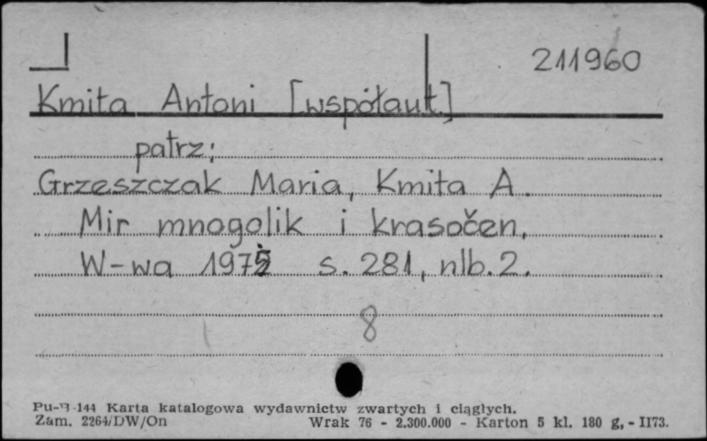 211960
Kmita Antoni [współaut.]
patrz:
Grzeszczak Maria, Kmita A.
Mir mnogolik i krasočen.
W-wa s. 281, nlb. 2.
8
144 Karta katalogowa wydawnictw zwartych i ciągłych.
Zam. 2264/DW/On Wrak 76 - 2.300.000 - Karton 5 kl. 180 g, - II73.